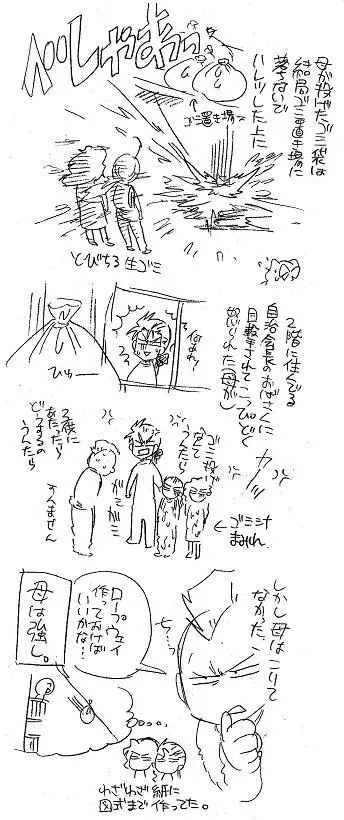 べべしゃああっ
母が投げたゴミ袋は
結局ゴミ置き場に
落ちないで
ハレツした上に
↑ゴミ置き場
とびちる生ゴミ
2階に住んでる
自治会長のおばさんに
目撃されてこっぴどく
怒られた(母が)
なぁっ
ひゅー
ガミ
ガミ
2歳に
あたったら
どうするの
うんたら
すんません
←ゴミ汁
まみれ
しかし母はこりて
なかった、
ロープウェイ
作っておけば
いいかな…
母は強し。
わざわざ紙に
図式まで作ってた。